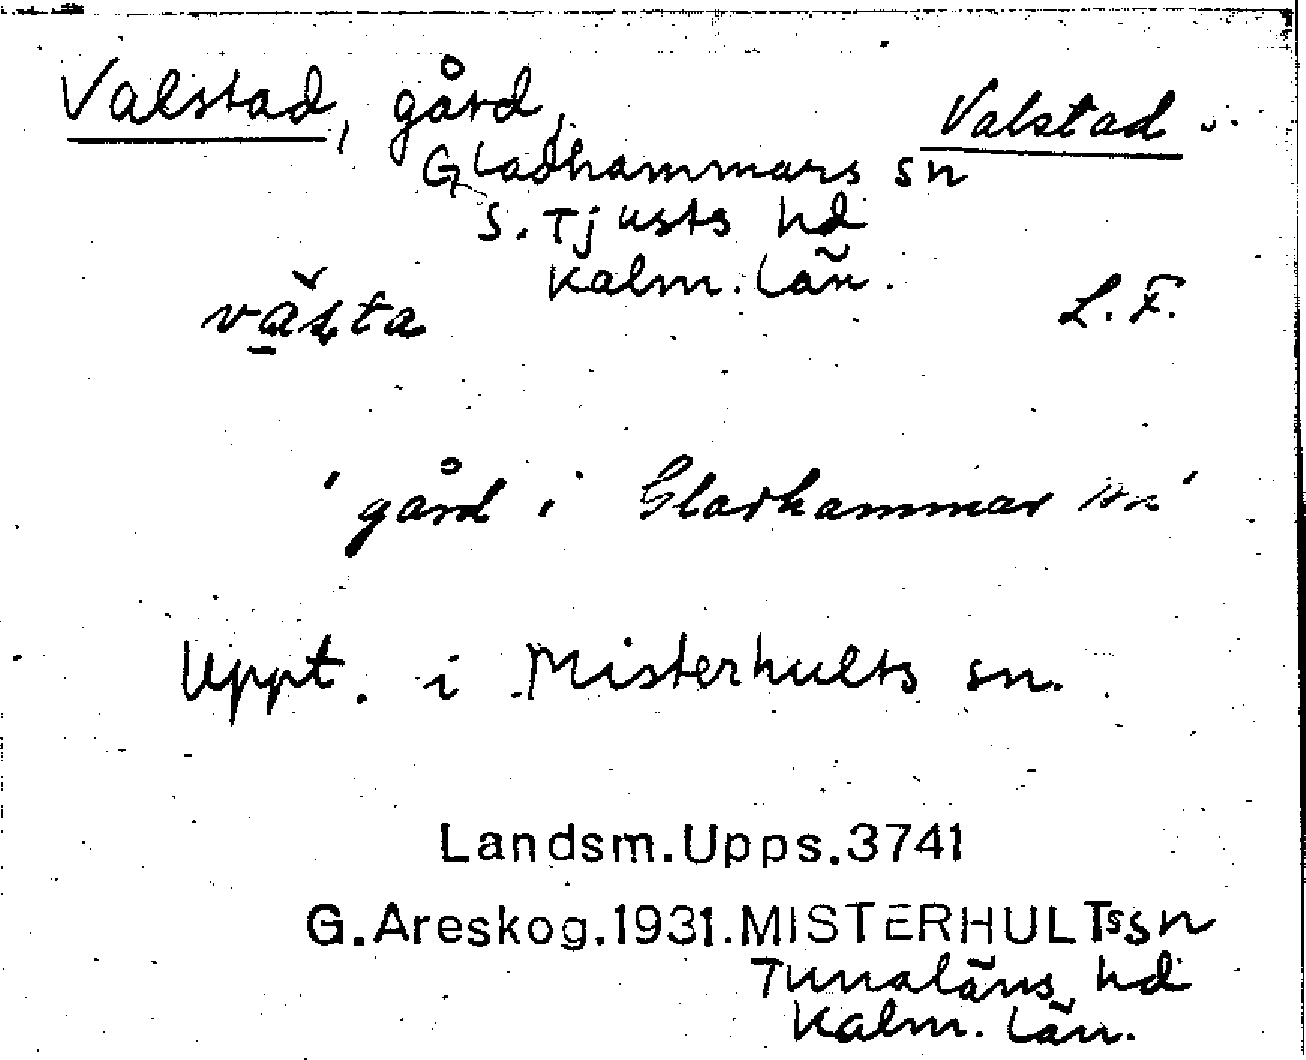 Valstad, gård, Valstad
Gladhammars sn
S. Tjusts hd
Kalm. län.
L. F.
'gård i Gladhammar sn'
Uppt. i Misterhults sn.
Landsm.Upps.3741
G.Areskog.1931.MISTERHULTs sn
Tunaläns hd
Kalm. län.